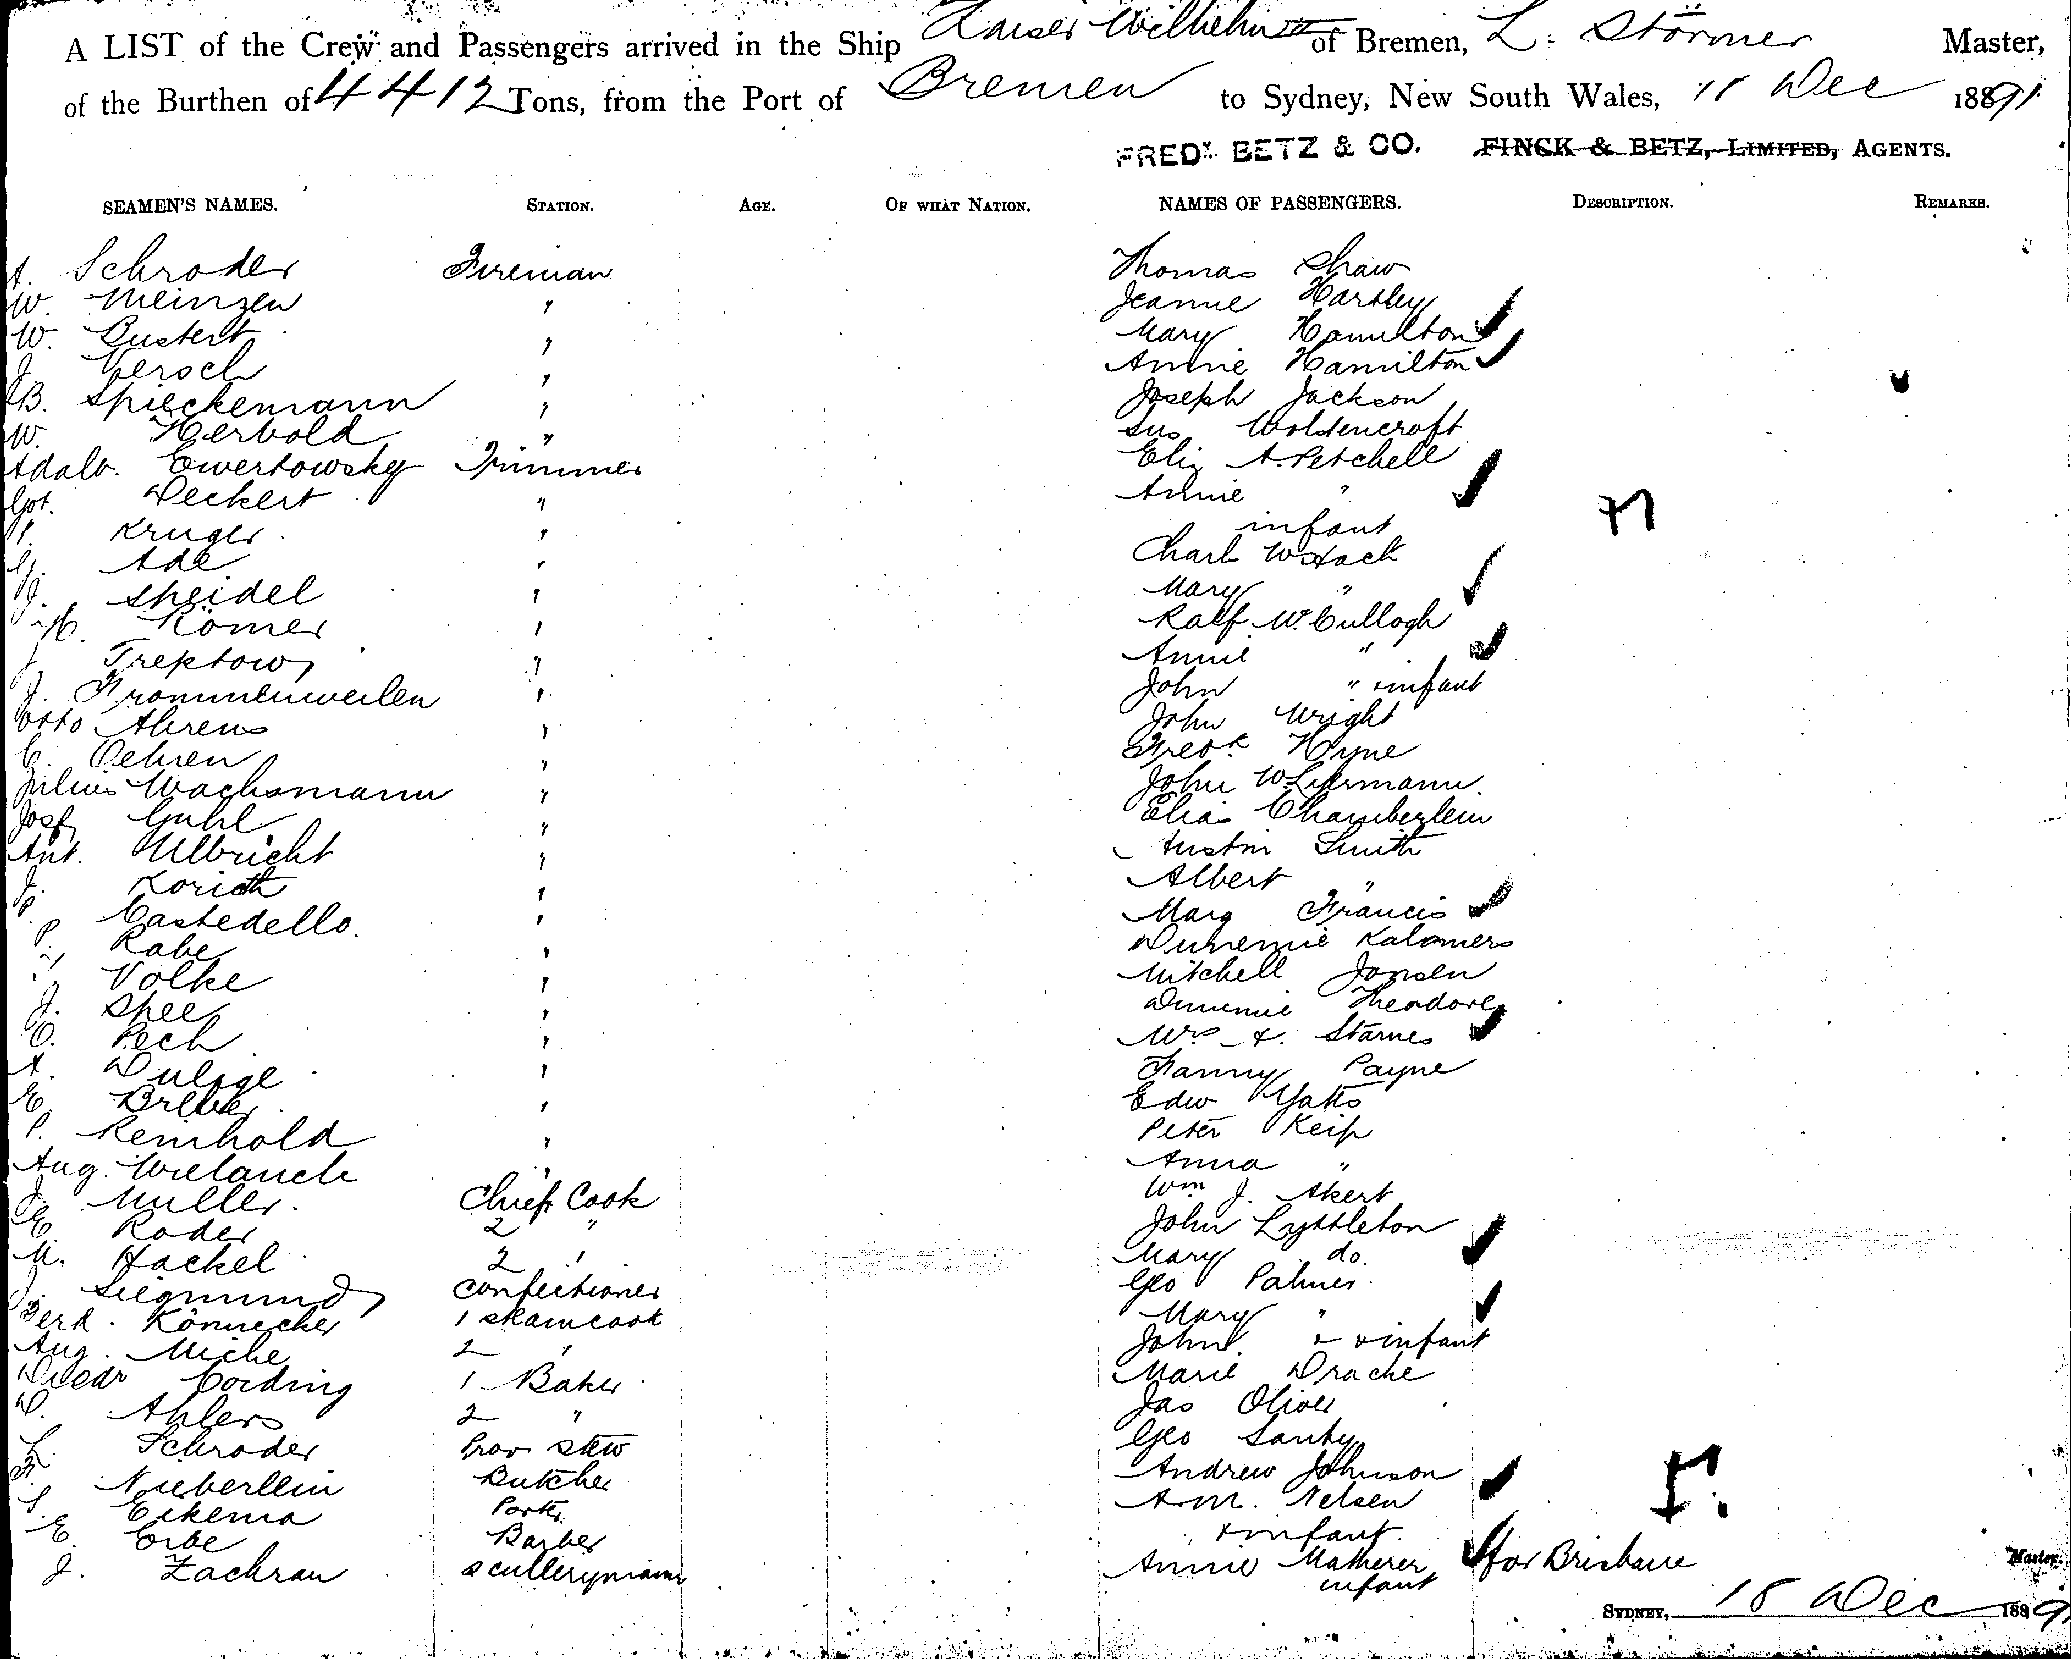 A LIST of the Crew and Passengers arrived in the Ship Kaiser Wilhelm II of Bremen, L. Störmer Master,
of the Burthen of 4412 Tons, from the Port of Bremen to Sydney, New South Wales, 18 Dec 1891
FREDK BETZ & CO. FINCK & BETZ, LIMITED, AGENTS.
SEAMEN'S NAMES. STATION. AGE. OF WHAT NATION. NAMES OF PASSENGERS. DESCRIPTION. REMARKS.
A. Schroder Fireman Thomas Shaw
W. Meinzen " Jeanne Harsley
W. Bustert " Mary Hamilton
J. Versch " Annie Hamilton
B. Spieckemann " Joseph Jackson
W. Herbold " Woldencroft
Adalb. Ewertowsky Trimmer Eliz A. Petchell
Got. Deckert " Annie "
Kruger " infant
Ade " Charl W Hack
J. Speidel " Mary "
H. Römer " Ralf McCullogh
Treptow " Annie "
J. Frommenweilen " John " + infant
Otto Ahrens " John Wright
C. Oehren " Fredk Hyne
Julius Wachsmann " John W Luhrmann
Josf Guhl " Elia Chamberlein
Ant. Ulbricht " Austin Smith
Korith " Albert "
Castedello. " Mary Francis
Rabe " Kalomers
Volke " Mitchell Jonsen
J. Spee " Theodore
O. Pech " Mrs A. Starnes
A. " Fanny Payne
E. " Edw Yates
P. Reinhold " Peter Keip
Aug. Wielauch " Anna "
J. Muller Chief Cook Wm J. Akert
E. Roder 2 " John Lyttleton
M. Hackel 2 " Mary do.
J. Siegmund Confectioner Geo Palmer
Ferd. Könnecker 1 steamcook Mary "
Aug. Miche 2 " John " + infant
Diedr Cording 1 Baker Marie Drache
D. Ahlers 2 " Jas Oliver
L. Schroder Prov Stew Geo Santy
Nieberlein Butcher Andrew Johnson
S. Eikema Porter A.M. Nelsen
E. Erbe Barber + infant
J. Zachrau Scullerymann Annie Matherer for Brisbane
infant
Master.
SYDNEY, 18 Dec 1891